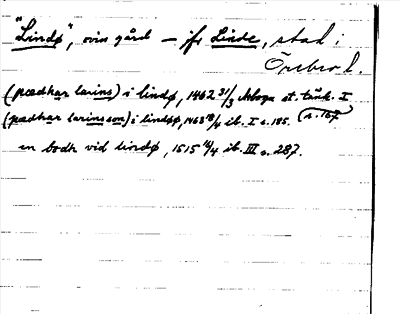 "Lindø", ovin gård – jfr Linde, stad i
Örebro l.
(pædhar larins) i lindø, 1462 31/3 Arboga st. tänk. I
(pædhar larinsson) i lindøø, 1463 18/4 ib. I s. 185. s. 167
en bodh vid lindø, 1515 16/4 ib. III s. 287.